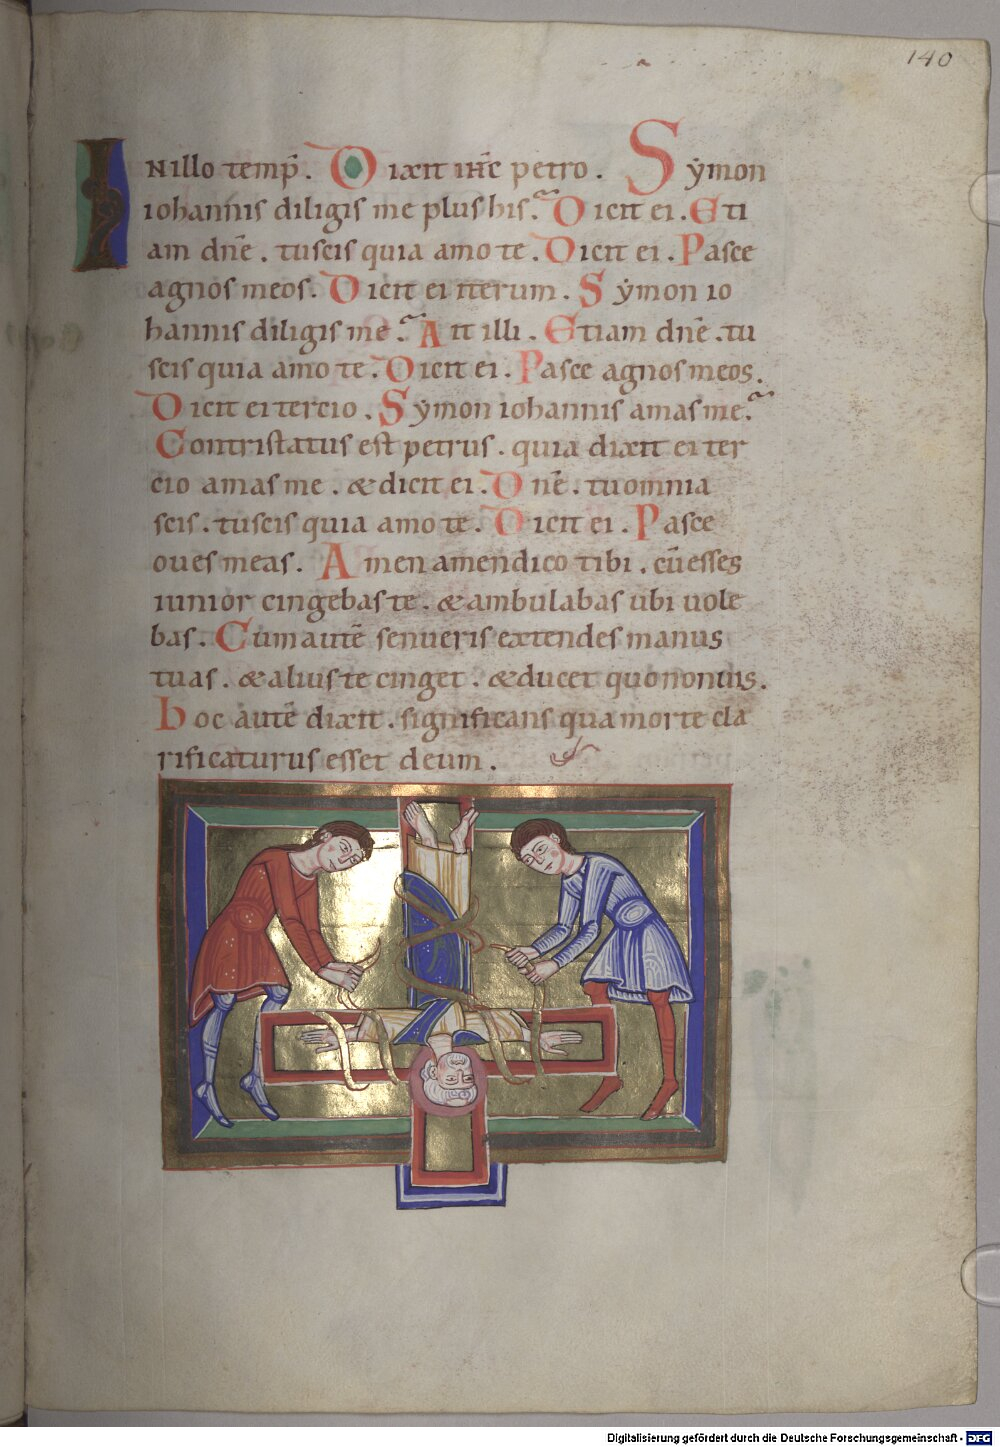 140
INillo temp̄. Dixit ih̄c petro. Sẏmon
iohannis diligis me plus his? Dicit ei. Eti
am dn̄e. tu scis quia amo te. Dicit ei. Pasce
agnos meos. Dicit ei iterum. Sẏmon io
hannis diligis me? Ait illi. Etiam dn̄e. tu
scis quia amo te. Dicit ei. Pasce agnos meos.
Dicit ei tercio. Sẏmon iohannis amas me?
Contristatus est petrus. quia dixit ei ter
cio amas me. & dicit ei. Dn̄e. tu omnia
scis. tu scis quia amo te. Dicit ei. Pasce
oues meas. Amen amen dico tibi. cū esses
iunior cingebas te. & ambulabas ubi uole
bas. Cum autē senueris extendes manus
tuas. & alius te cinget. & ducet quo non uis.
Hoc autē dixit. significans qua morte cla
rificaturus esset deum.
Digitalisierung gefördert durch die Deutsche Forschungsgemeinschaft - DFG